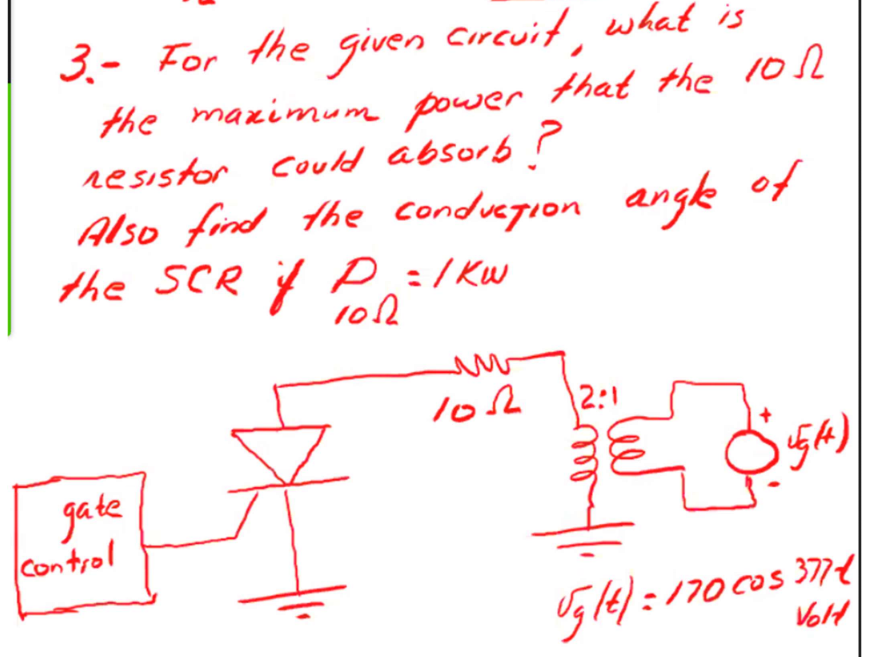 3.- For the given circuit, what is
the maximum power that the 10 Ω
resistor could absorb?
Also find the conduction angle of
the SCR if P = 1 KW
10Ω
10 Ω
2:1
+
vg(t)
-
gate
control
vg(t) = 170 cos 377t
Volt